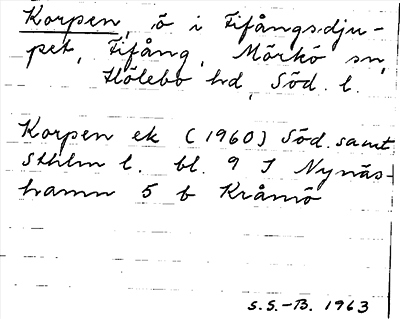 Korpen, ö i Fifångsdju-
pet, Fifång, Mörkö sn,
Hölebo hd, Söd. l.
Korpen ek (1960) Söd. samt
Sthlm l. bl. 9 I Nynäs-
hamn 5 b Krämö
S.S.-B. 1963